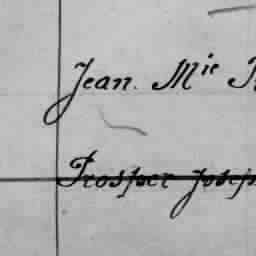 Jean. Mie
Prosper Joseph